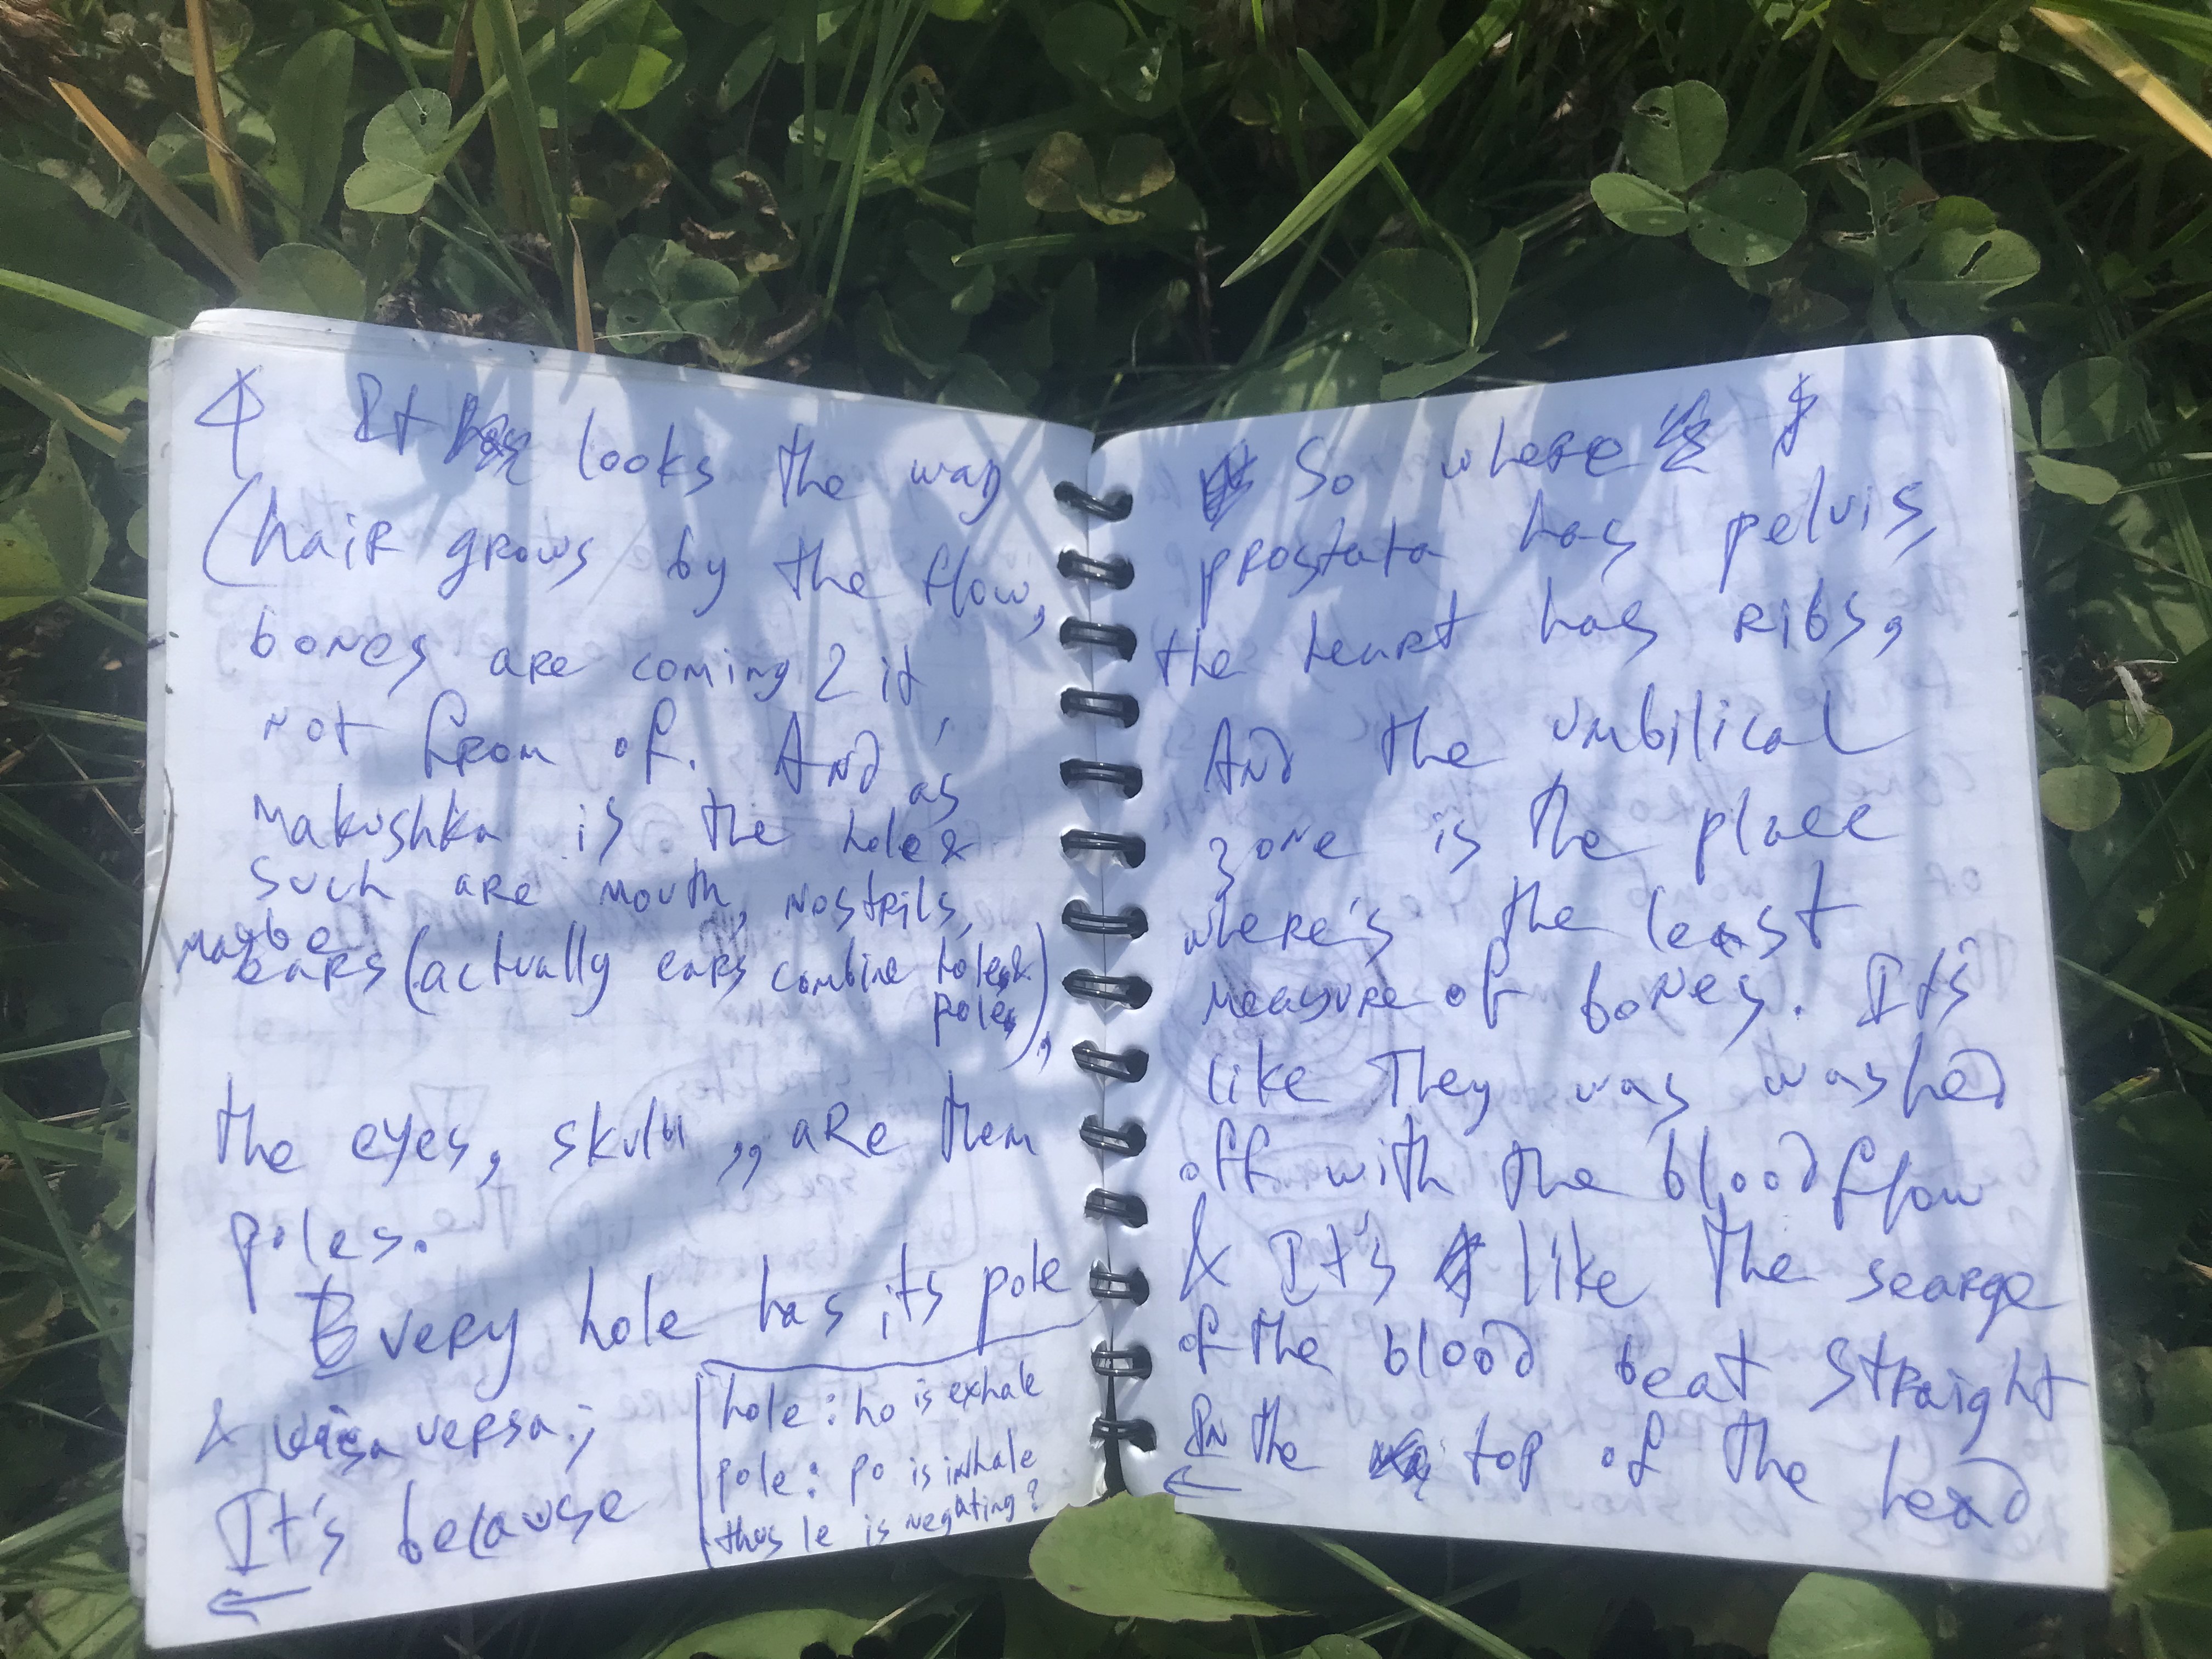 It looks the way
(hair grows by the flow,
bones are coming 2 it,
not from of. And, as
makushka is the hole &
such are mouth, nostrils,
maybe ears (actually ears combine holes &
poles),
the eyes, skull ,, are them
poles.
Every hole has its pole
& visa versa;
It's because
hole: ho is exhale
pole: po is inhale
thus le is negating?
So where
prostata has pelvis
the heart has ribs,
And the umbilical
zone is the place
where's the least
measure of bones. It's
like they was washed
off with the blood flow
& It's like the searge
of the blood beat straight
in the top of the head